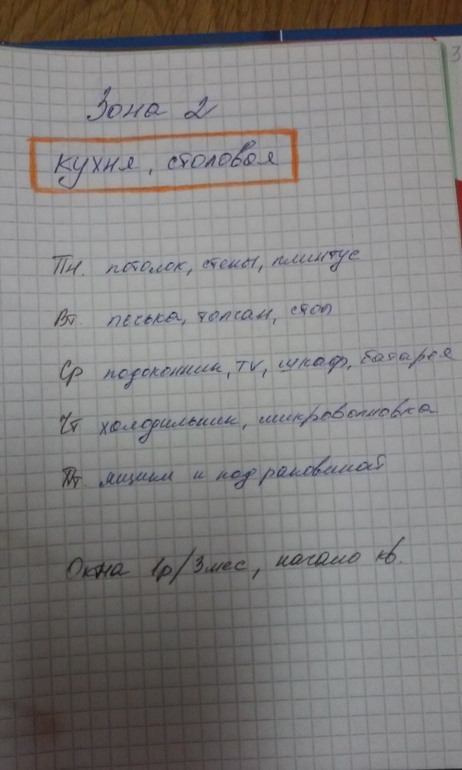 Зона 2
кухня, столовая
Пн. потолок, стены, плинтус
Вт. печька, топчан, стол
Ср подоконник, TV, шкаф, батарея
Чт холодильник, микроволновка
Пт. ящики и под раковиной
Окна 1р/3мес, начало кв.